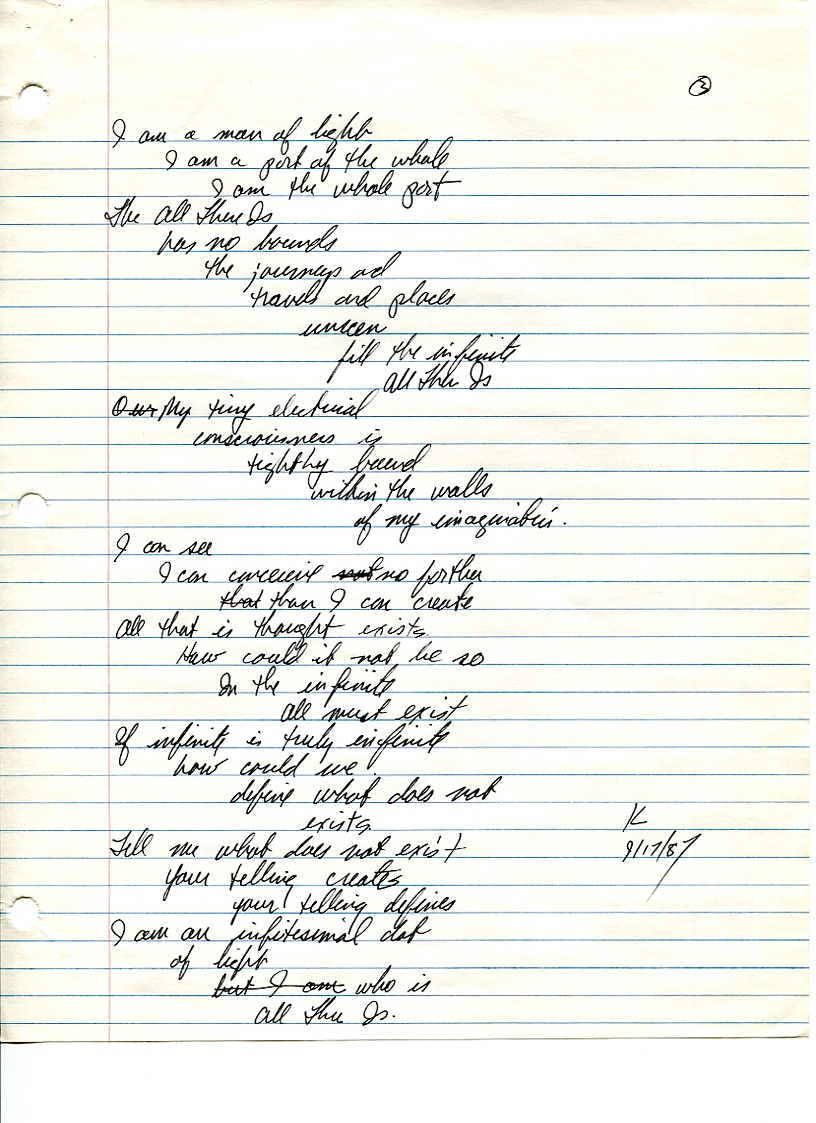 ③
I am a man of light
I am a part of the whole
I am the whole part
The All There Is
has no bounds
the journeys and
travels and places
unseen
fill the infinite
All There Is
Our My tiny electrical
consciousness is
tightly bound
within the walls
of my imagination.
I can see
I can conceive not no further
that than I can create
All that is thought exists
How could it not be so
In the infinite
all must exist
If infinite is truly infinite
how could we
define what does not
exists
Tell me what does not exist
your telling creates
your telling defines
I am an infitesimal dot
of light
but I am who is
All There Is.
K
9/17/87